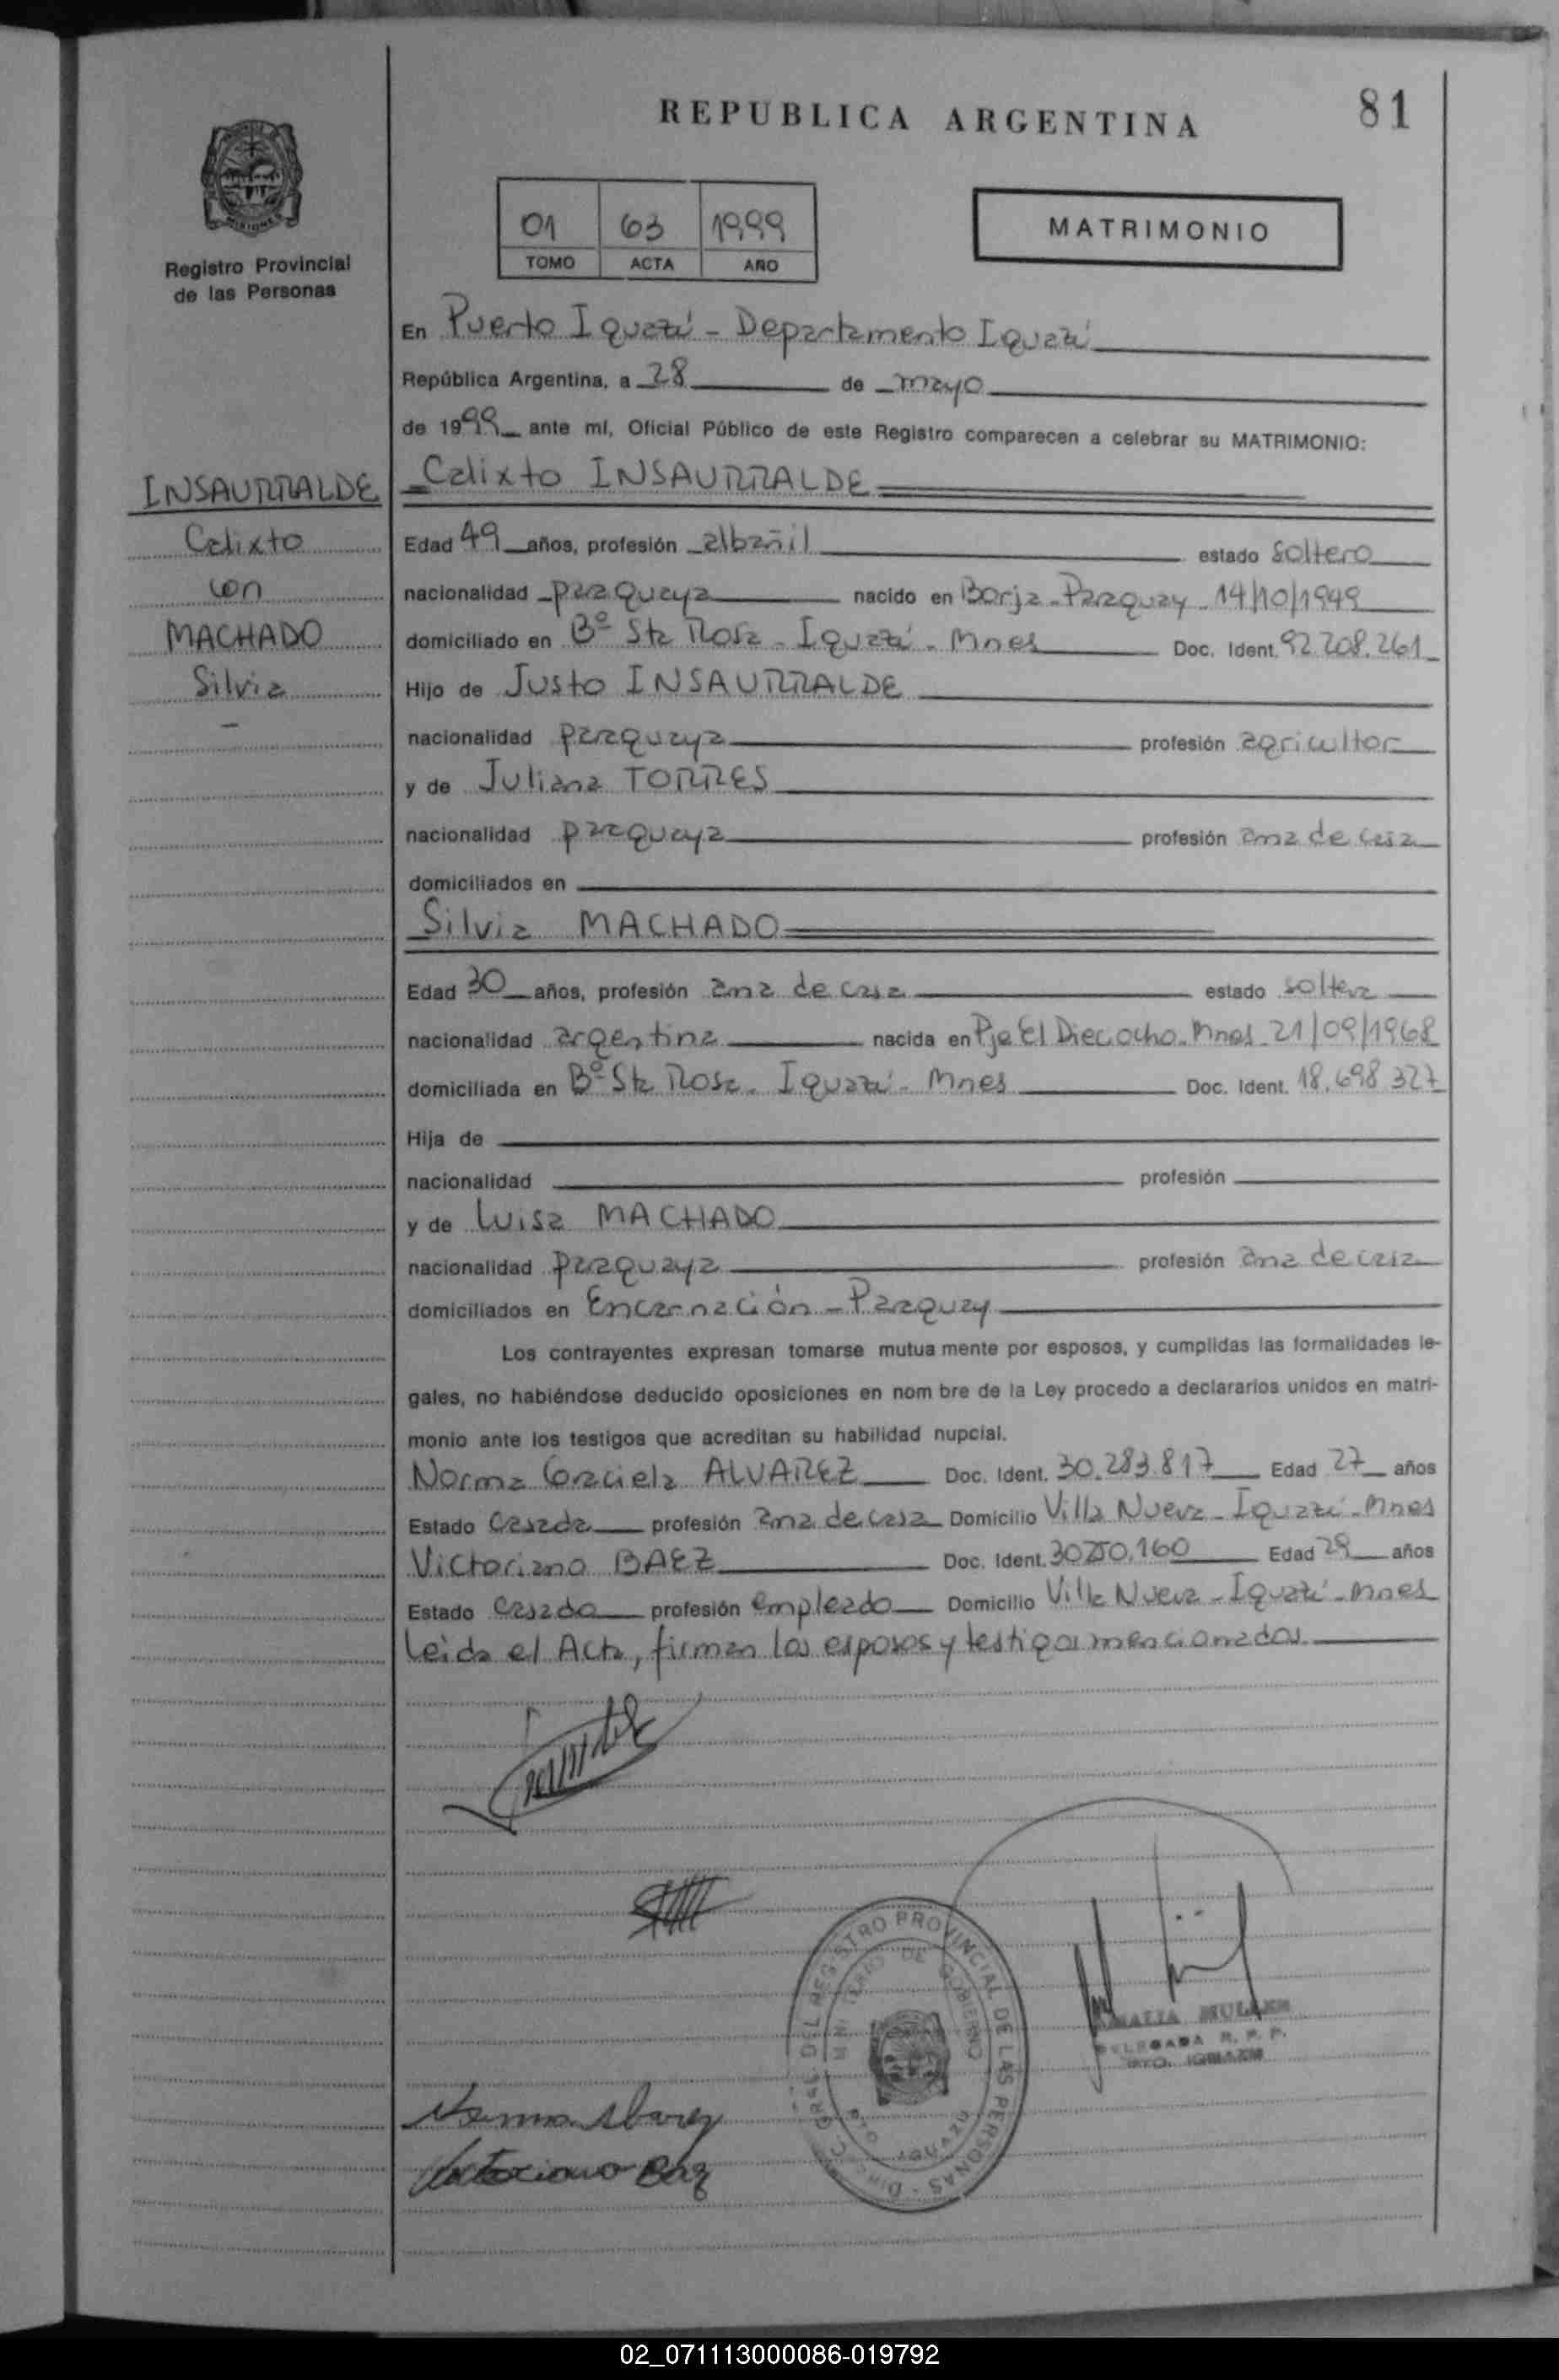 REPUBLICA ARGENTINA
81
MISIONES
Registro Provincial
de las Personas
01 63 1999
TOMO ACTA AÑO
MATRIMONIO
En Puerto Iguazú - Departamento Iguazú
República Argentina, a 28 de mayo
de 1999 ante mí, Oficial Público de este Registro comparecen a celebrar su MATRIMONIO:
INSAURRALDE
Calixto
con
MACHADO
Silvia
Calixto INSAURRALDE
Edad 49 años, profesión albañil estado soltero
nacionalidad paraguaya nacido en Borja - Paraguay - 14/10/1949
domiciliado en Bº Sta Rosa - Iguazú - Mnes Doc. Ident. 92.208.261
Hijo de Justo INSAURRALDE
nacionalidad paraguaya profesión agricultor
y de Juliana TORRES
nacionalidad paraguaya profesión ama de casa
domiciliados en
Silvia MACHADO
Edad 30 años, profesión ama de casa estado soltera
nacionalidad argentina nacida en Pje El Dieciocho - Mnes - 21/09/1968
domiciliada en Bº Sta Rosa - Iguazú - Mnes Doc. Ident. 18.698.327
Hija de
nacionalidad profesión
y de Luisa MACHADO
nacionalidad paraguaya profesión ama de casa
domiciliados en Encarnación - Paraguay
Los contrayentes expresan tomarse mutua mente por esposos, y cumplidas las formalidades le-
gales, no habiéndose deducido oposiciones en nom bre de la Ley procedo a declararlos unidos en matri-
monio ante los testigos que acreditan su habilidad nupcial.
Norma Graciela ALVAREZ Doc. Ident. 30.283.817 Edad 27 años
Estado casada profesión ama de casa Domicilio Villa Nueva - Iguazú - Mnes
Victoriano BAEZ Doc. Ident. 30.250.160 Edad 29 años
Estado casado profesión empleado Domicilio Villa Nueva - Iguazú - Mnes
Leída el Acta, firman los esposos y testigos mencionados
DIREC. GRAL. DEL REGISTRO PROVINCIAL DE LAS PERSONAS
MINISTERIO DE GOBIERNO
PTO. IGUAZU
AMALIA MULLER
DELEGADA R. P. P.
PTO. IGUAZU
Norma Alvarez
Victoriano Baez
02_071113000086-019792